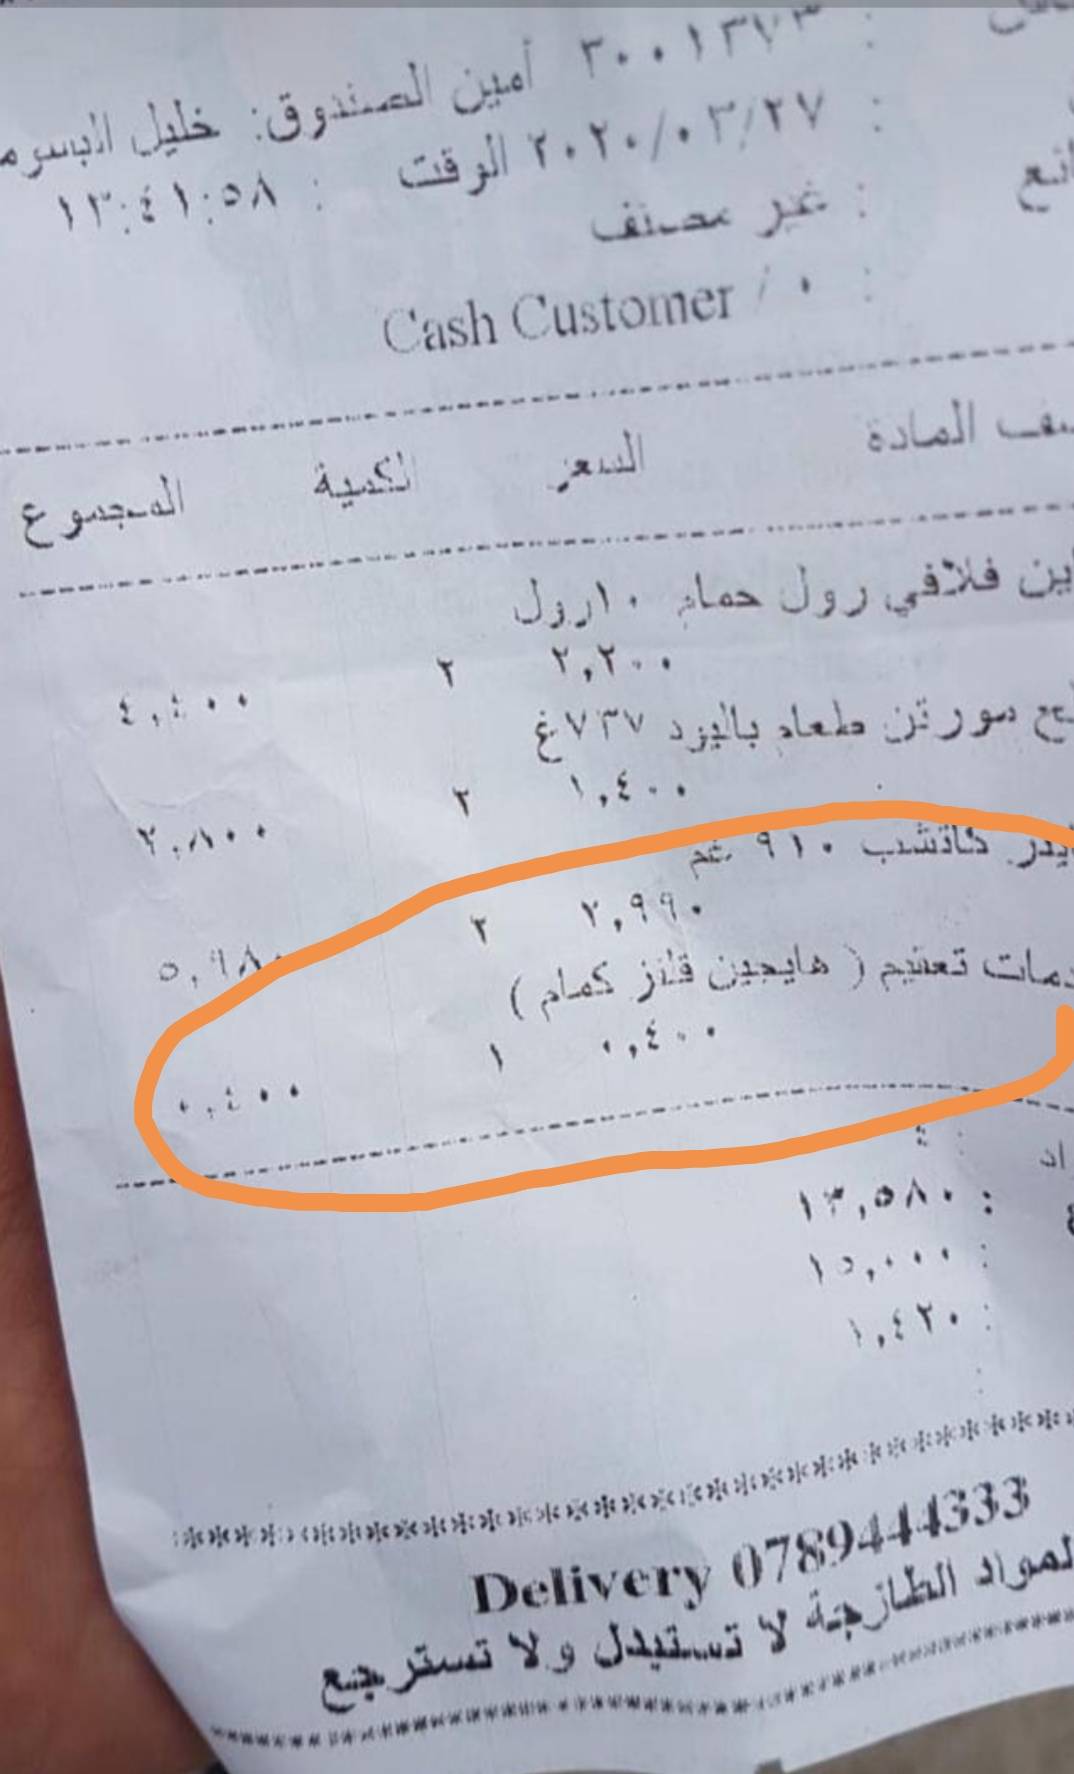 : ٣٠٠١٣٧٣ أمين الصندوق: خليل البسوم
: ٢٠٢٠/٠٣/٢٧ الوقت : ١٣:٤١:٥٨
: غير مصنف
: ٠ / Cash Customer
المادة السعر الكمية المجموع
فلافي رول حمام ١٠رول
٢,٢٠٠ ٢ ٤,٤٠٠
مورتن طعام باليزد ٧٣٧غ
١,٤٠٠ ٢ ٢,٨٠٠
كاتشب ٩١٠ غم
٢,٩٩٠ ٢ ٥,٩٨٠
تعقيم ( هايجين قلنز كمام )
٠,٤٠٠ ١ ٠,٤٠٠
: ٤
: ١٣,٥٨٠
: ١٥,٠٠٠
: ١,٤٢٠
Delivery 0789444333
المواد الطازجة لا تستبدل ولا تسترجع